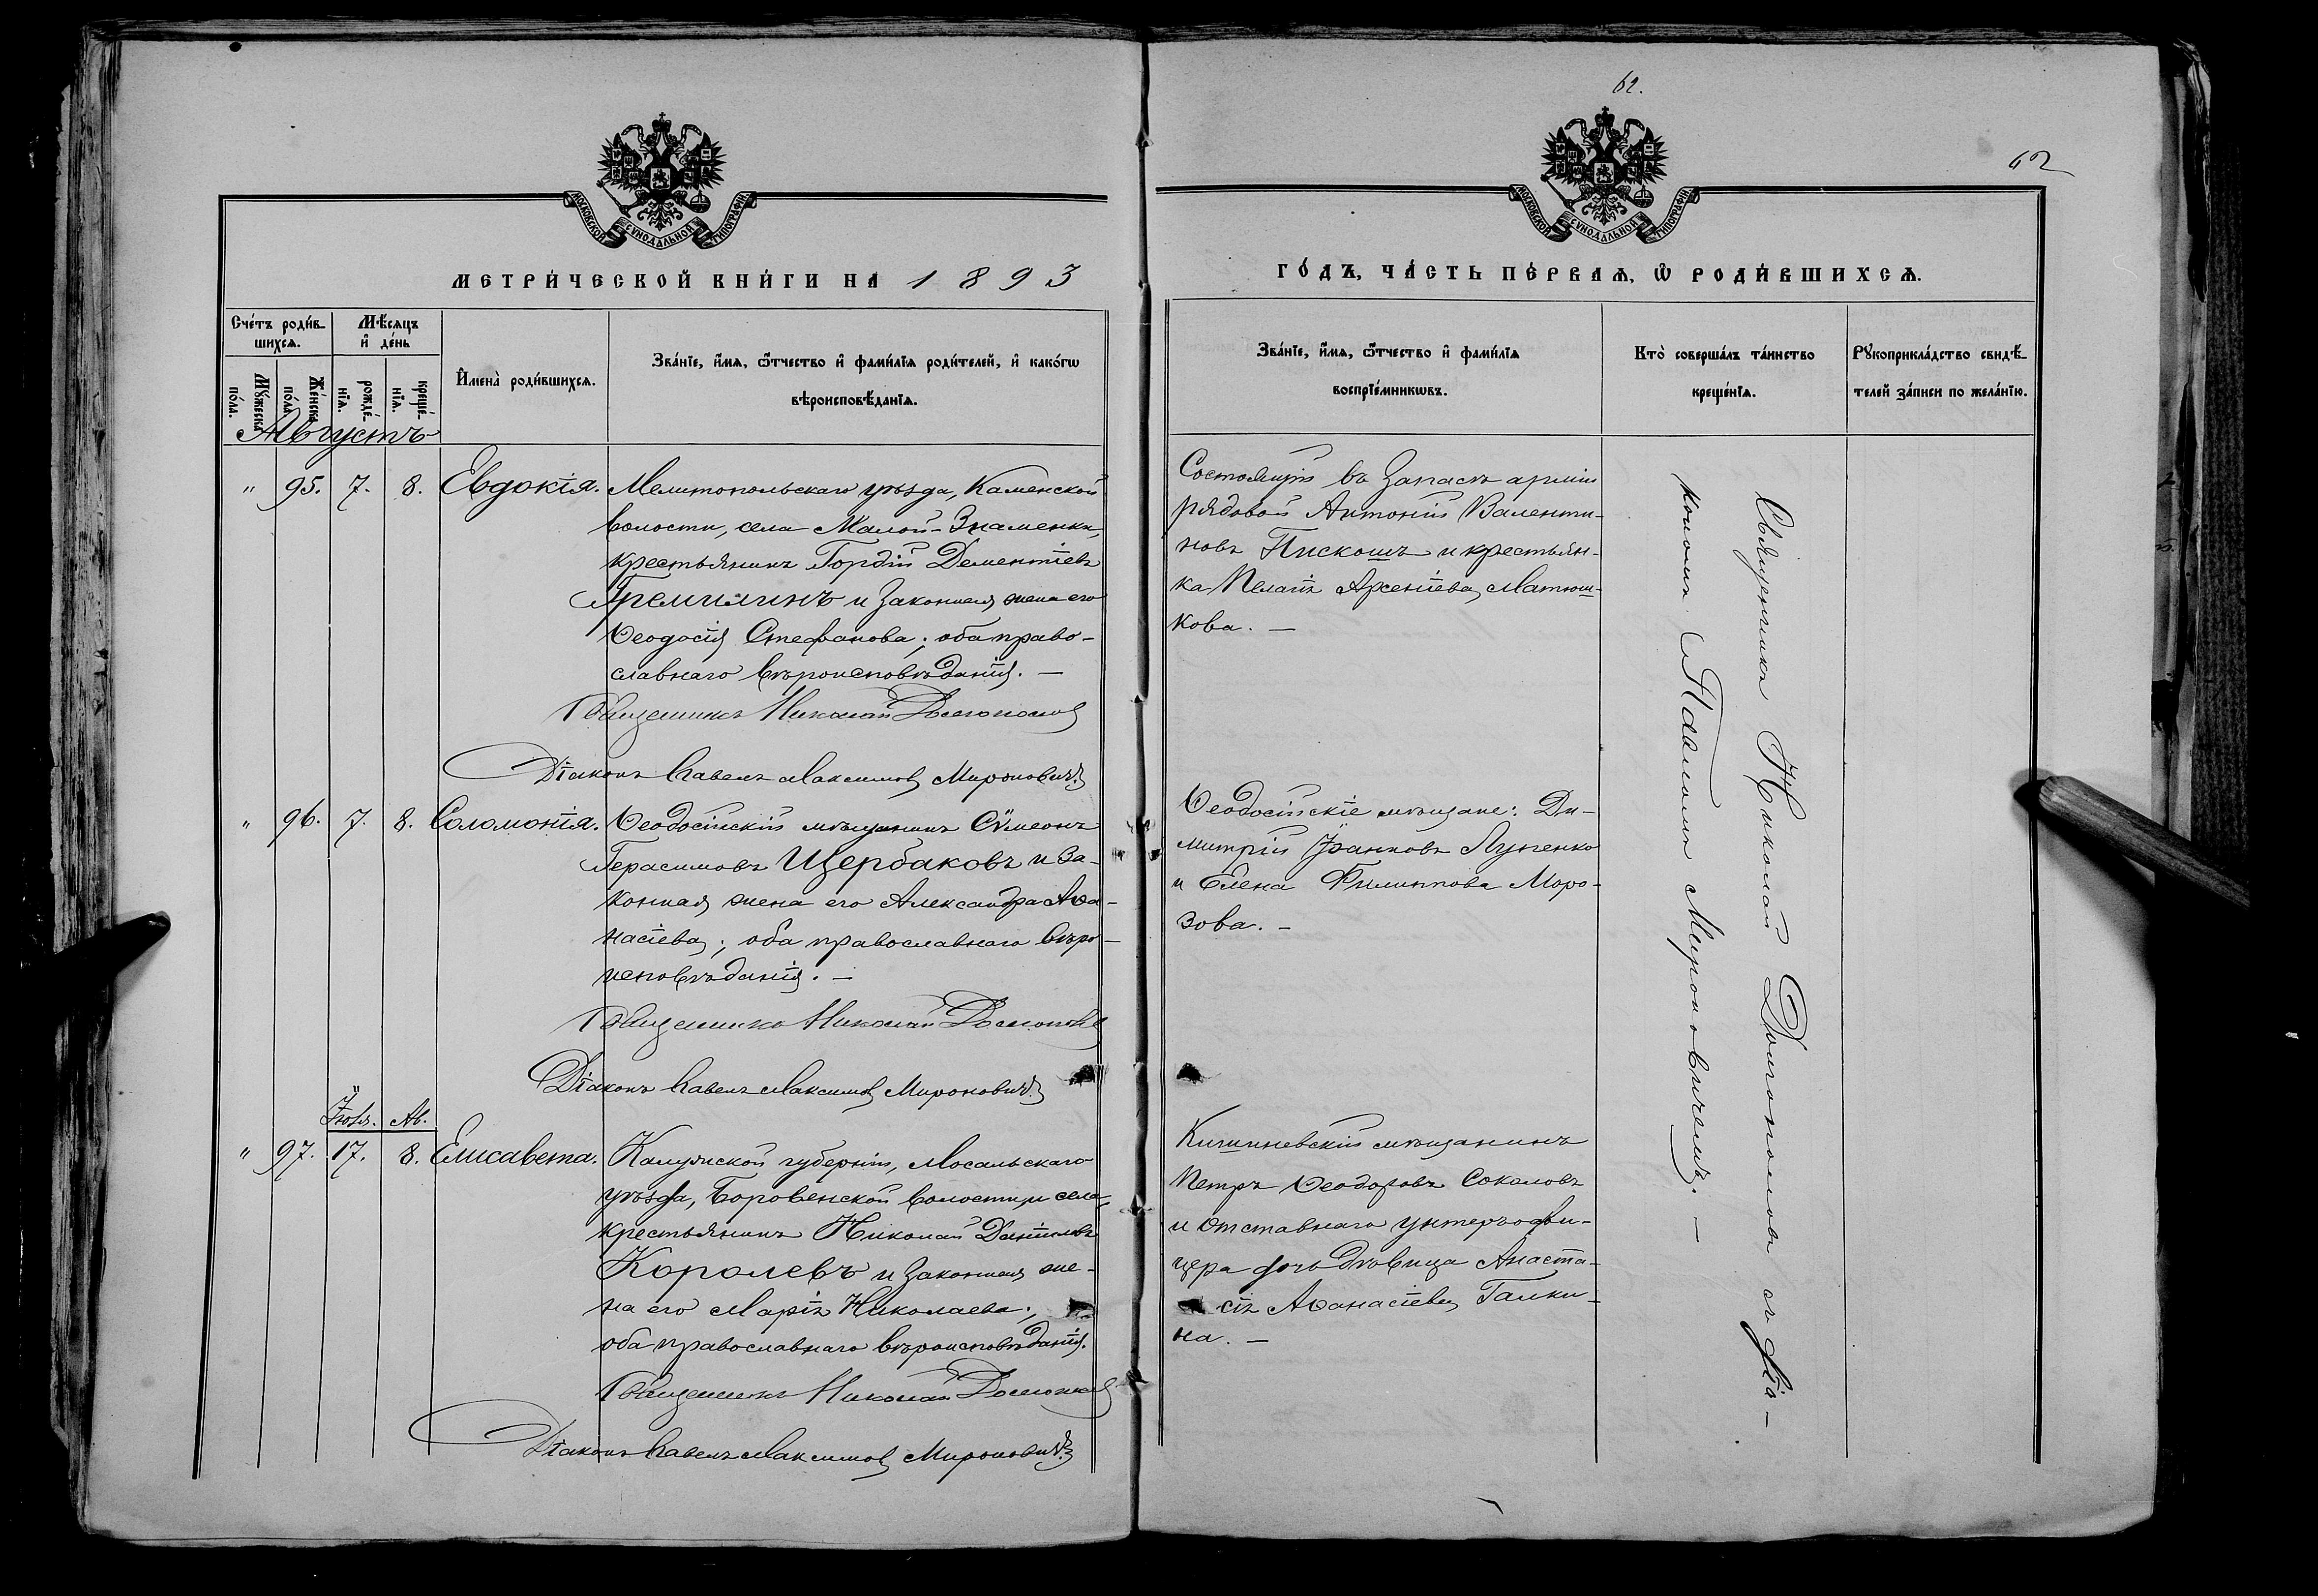 62.
62
МОСКОВСКОЙ СѴНОДАЛЬНОЙ ТИПОГРАФІИ
МОСКОВСКОЙ СѴНОДАЛЬНОЙ ТИПОГРАФІИ
МЕТРИ́ЧЕСКОЙ КНИ́ГИ НА 1893
ГО́ДЪ, ЧА́СТЬ ПЕ́РВАѦ, Ѡ҆ РОДИ́ВШИХСѦ.
Сче́тъ роди́в-
шихсѧ.
Мѣ́сѧцъ
и҆ де́нь
Мꙋ́жеска
по́ла.
Же́нска
по́ла.
рожде́-
нїѧ.
креще́-
нїѧ.
И҆мена̀ роди́вшихсѧ.
Зва́нїе, и҆́мѧ, ѻ҆́тчество и҆ фами́лїѧ роди́телей, и҆ како́гѡ
вѣроисповѣ́данїѧ.
Зва́нїе, и҆́мѧ, ѻ҆́тчество и҆ фами́лїѧ
воспрїе́мникѡвъ.
Кто̀ соверша́лъ та́инство
креще́нїѧ.
Рꙋкоприкла́дство свидѣ́-
телей за́писи по жела́нїю.
Августъ
" 95. 7. 8. Евдокія.
Мелитопольскаго уѣзда, Каменской
волости, села Малой-Знаменки,
крестьянинъ Гордій Дементіевъ
Гремилинъ и законная жена его
Ѳеодосія Стефанова; оба право-
славнаго вѣроисповѣданія. —
Священникъ Николай Долгополовъ
Діаконъ Павелъ Максимовъ Мироновичъ
Состоящій въ запасѣ арміи
рядовой Антоній Валенти-
новъ Пискошъ и крестьян-
ка Пелагія Арсеніева Матюш-
кова. —
Священникъ Николай Долгополовъ съ діа-
кономъ Павломъ Мироновичемъ. —
" 96. 7. 8. Соломонія.
Ѳеодосійскій мѣщанинъ Сѵмеонъ
Герасимовъ Щербаковъ и за-
конная жена его Александра Аѳа-
насіева; оба православнаго вѣро-
исповѣданія. —
Священникъ Николай Долгополовъ
Діаконъ Павелъ Максимовъ Мироновичъ
Ѳеодосійскіе мѣщане: Ди-
митрій Іоанновъ Луценко
и Елена Филиппова Моро-
зова. —
Іюля. Ав.
" 97. 17. 8. Елисавета.
Калужской губерніи, Мосальскаго
уѣзда, Боровенской волости, и села,
крестьянинъ Николай Даніиловъ
Королевъ и законная же-
на его Марія Николаева;
оба православнаго вѣроисповѣданія.
Священникъ Николай Долгополовъ
Діаконъ Павелъ Максимовъ Мироновичъ
Кишиневскій мѣщанинъ
Петръ Ѳеодоровъ Соколовъ
и отставнаго унтеръ-офи-
цера дочь дѣвица Анаста-
сія Аѳанасіева Галки-
на. —